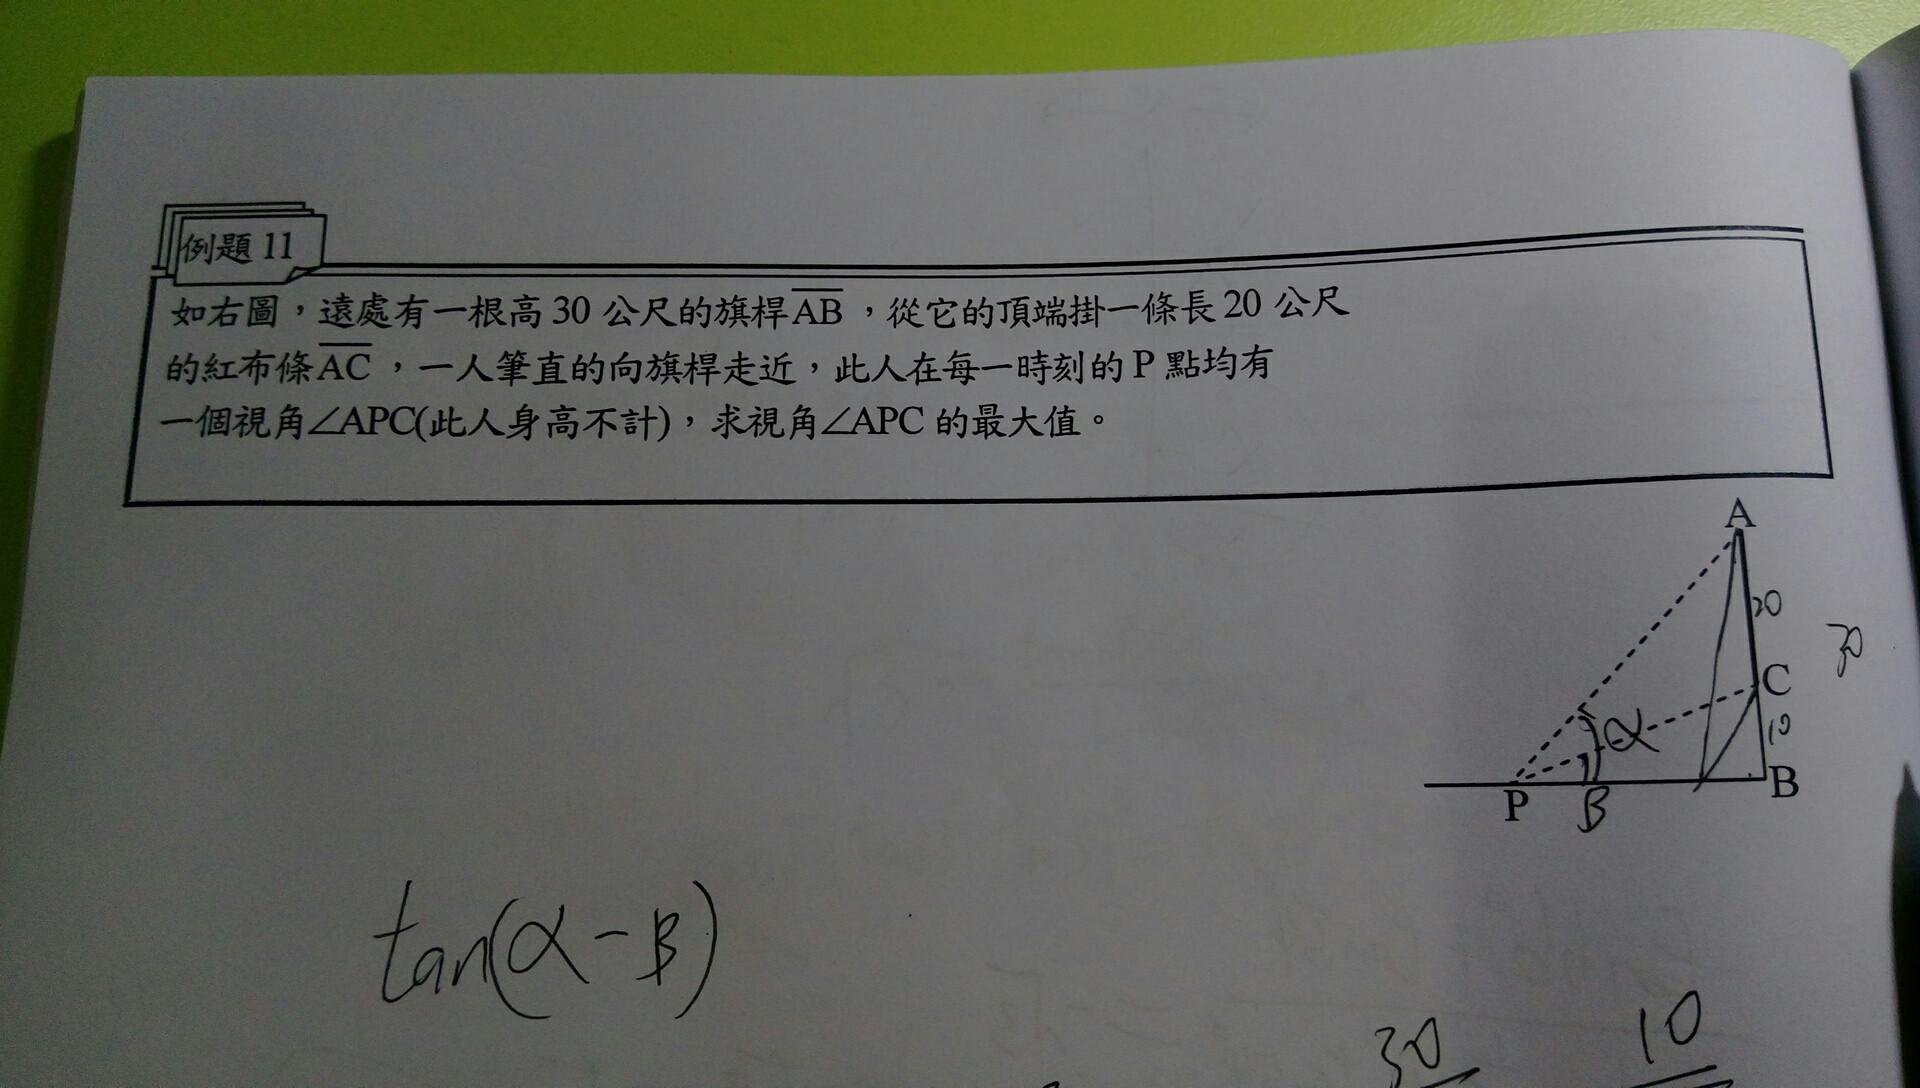 例題 11
如右圖，遠處有一根高 30 公尺的旗桿 AB ，從它的頂端掛一條長 20 公尺
的紅布條 AC ，一人筆直的向旗桿走近，此人在每一時刻的 P 點均有
一個視角∠APC(此人身高不計)，求視角∠APC 的最大值。
A
20
30
C
α
10
P
β
B
tan(α-β)
30
10